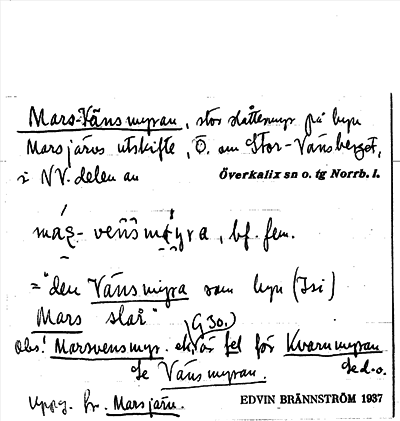 Mars-Vänsmyran, stor slåttermyr på byn
Marsjärvs utskifte, Ö. om Stor-Vänsberget,
i NV. delen av
Överkalix sn o. tg Norrb. l.
bf. fem.
="den Vänsmyra som byn (Isi)
Mars slår"
(G 30.)
Obs! Marsvensmyr. är fel för Kvarnmyran
Se Vänsmyran. Se d.o.
Uppg. fr. Marsjärv.
EDVIN BRÄNNSTRÖM 1937